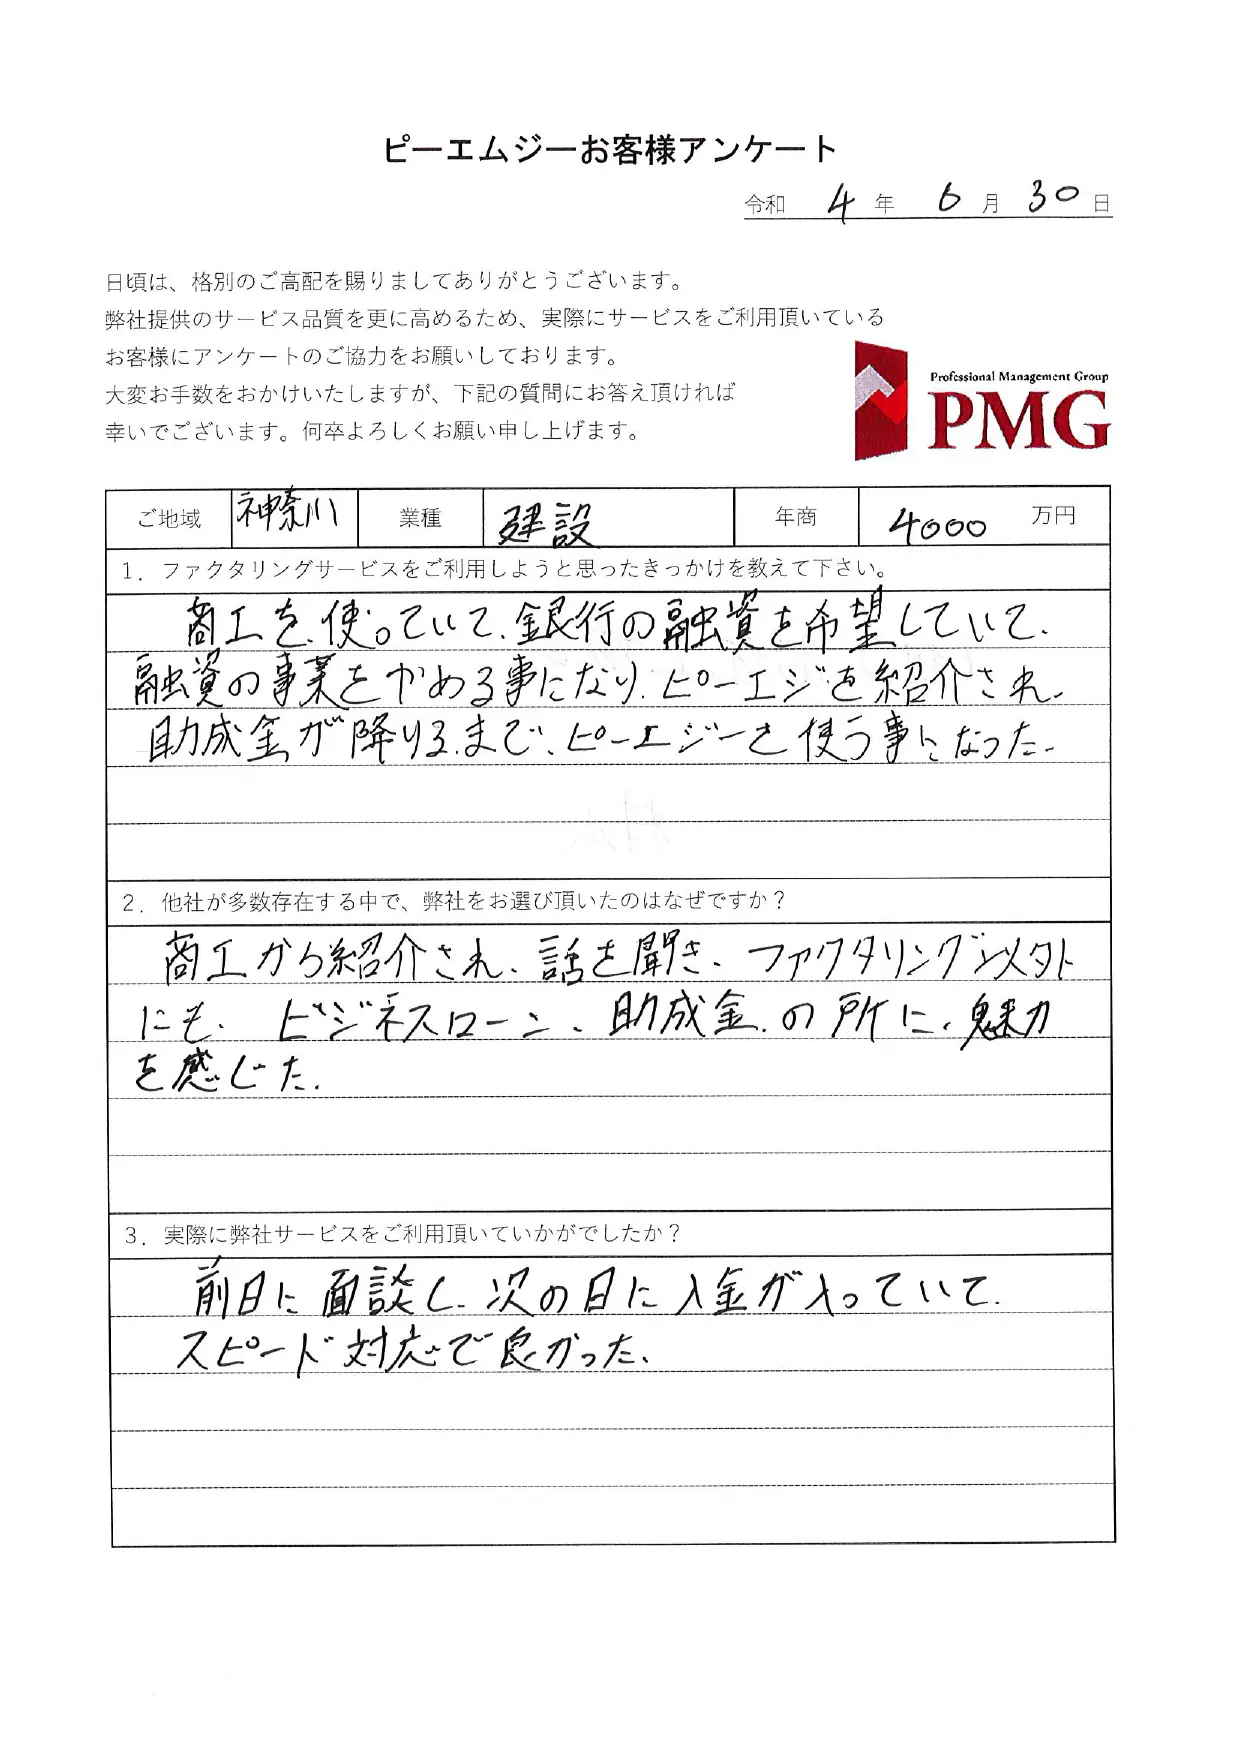 ピーエムジーお客様アンケート
令和 4 年 6 月 30 日
日頃は、格別のご高配を賜りましてありがとうございます。
弊社提供のサービス品質を更に高めるため、実際にサービスをご利用頂いている
お客様にアンケートのご協力をお願いしております。
大変お手数をおかけいたしますが、下記の質問にお答え頂ければ
幸いでございます。何卒よろしくお願い申し上げます。
Professional Management Group
PMG
ご地域 神奈川 業種 建設 年商 4000 万円
1．ファクタリングサービスをご利用しようと思ったきっかけを教えて下さい。
商工を、使っていて、銀行の融資を希望していて、
融資の事業をやめる事になり、ピーエジを紹介され、
助成金が降りる、まで、ピーエジーを使う事になった、
2．他社が多数存在する中で、弊社をお選び頂いたのはなぜですか？
商工から紹介され、話を聞き、ファクタリング以外
にも、ビジネスローン、助成金、の所に、魅力
を感じた、
3．実際に弊社サービスをご利用頂いていかがでしたか？
前日に面談し、次の日に入金が入っていて、
スピード対応で良かった、